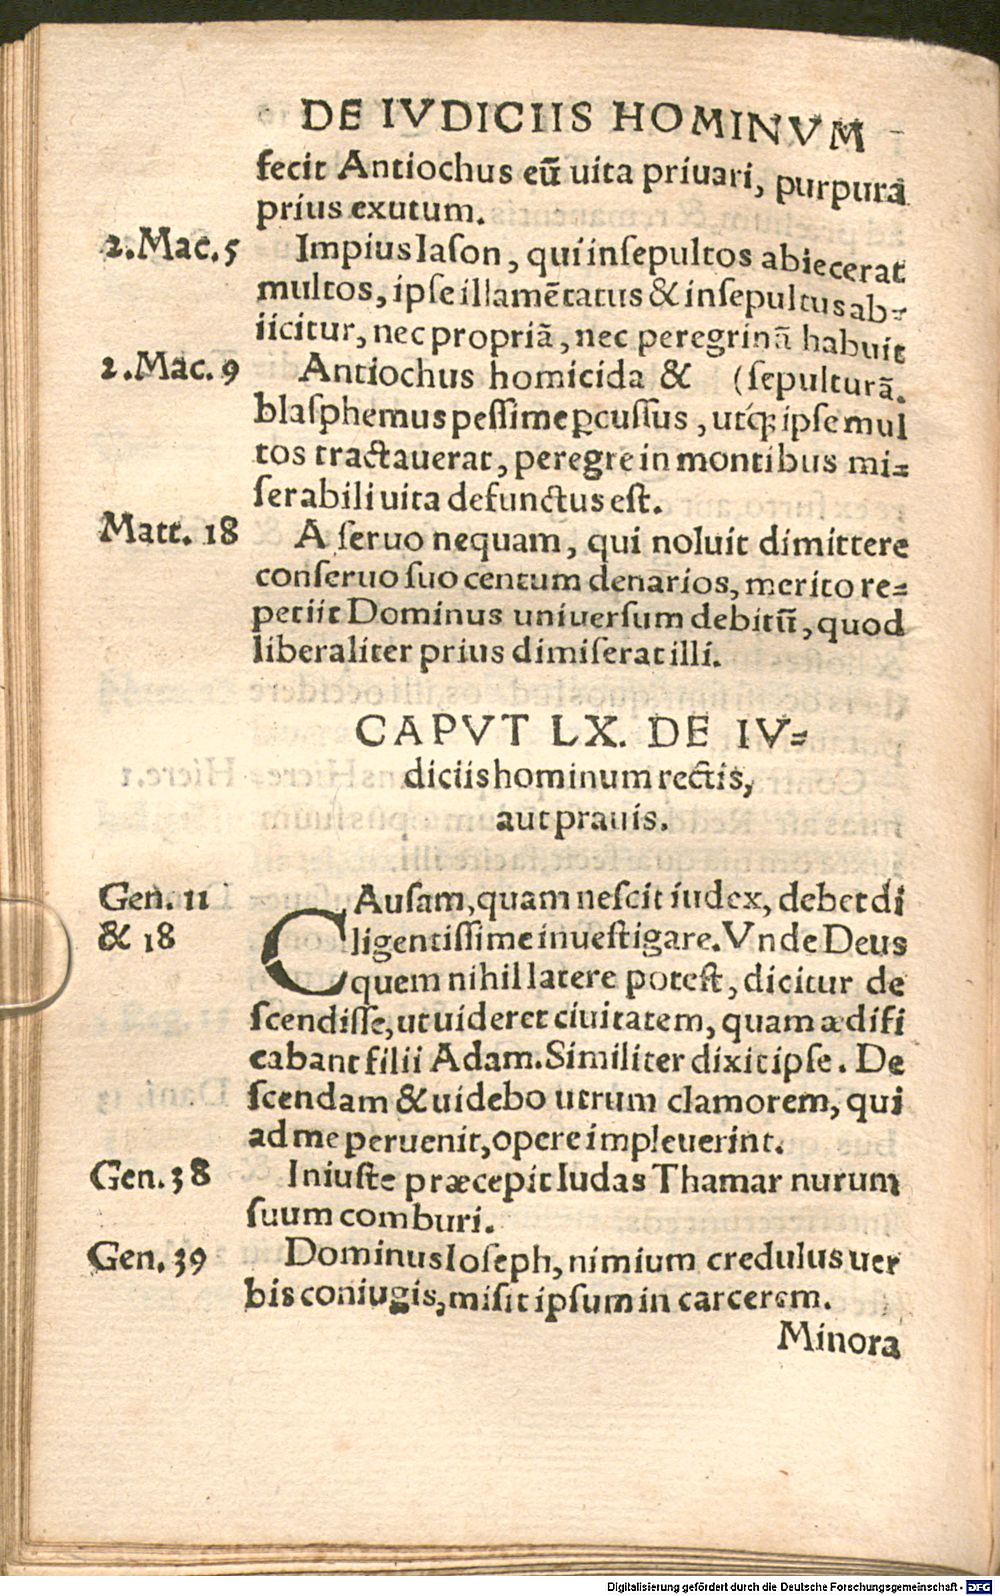 DE IVDICIIS HOMINVM
fecit Antiochus eū uita priuari, purpura
prius exutum.
2.Mac.5
Impius Iaſon, qui inſepultos abiecerat
multos, ipſe illamētatus & inſepultus ab-
iicitur, nec propriā, nec peregrinā habuit
2.Mac.9
Antiochus homicida & (ſepulturā.
blaſphemus peſſime ꝑcuſſus, utq́; ipſe mul
tos tractauerat, peregre in montibus mi-
ſerabili uita defunctus eſt.
Matt. 18
A ſeruo nequam, qui noluit dimittere
conſeruo ſuo centum denarios, merito re-
petiit Dominus uniuerſum debitū, quod
liberaliter prius dimiſerat illi.
CAPVT LX. DE IV-
diciis hominum rectis,
aut prauis.
Gen. 11
& 18
CAuſam, quam neſcit iudex, debet di
ligentiſſime inueſtigare. Vnde Deus
quem nihil latere poteſt, dicitur de
ſcendiſſe, ut uideret ciuitatem, quam ædifi
cabant filii Adam. Similiter dixit ipſe. De
ſcendam & uidebo utrum clamorem, qui
ad me peruenit, opere impleuerint.
Gen.38
Iniuſte præcepit Iudas Thamar nurum
ſuum comburi.
Gen.39
Dominus Ioſeph, nimium credulus uer
bis coniugis, miſit ipſum in carcerem.
Minora
Digitalisierung gefördert durch die Deutsche Forschungsgemeinschaft - DFG